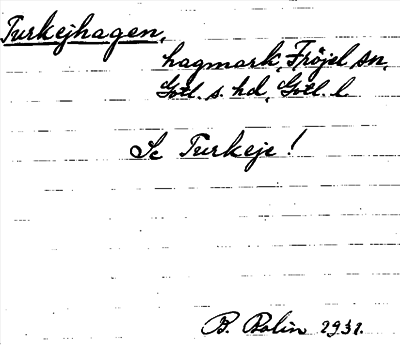 Turkejhagen,
hagmark, Fröjel sn,
Gotl. s. hd, Gotl. l.
Se Turkeje!
B. Bolin 1931.